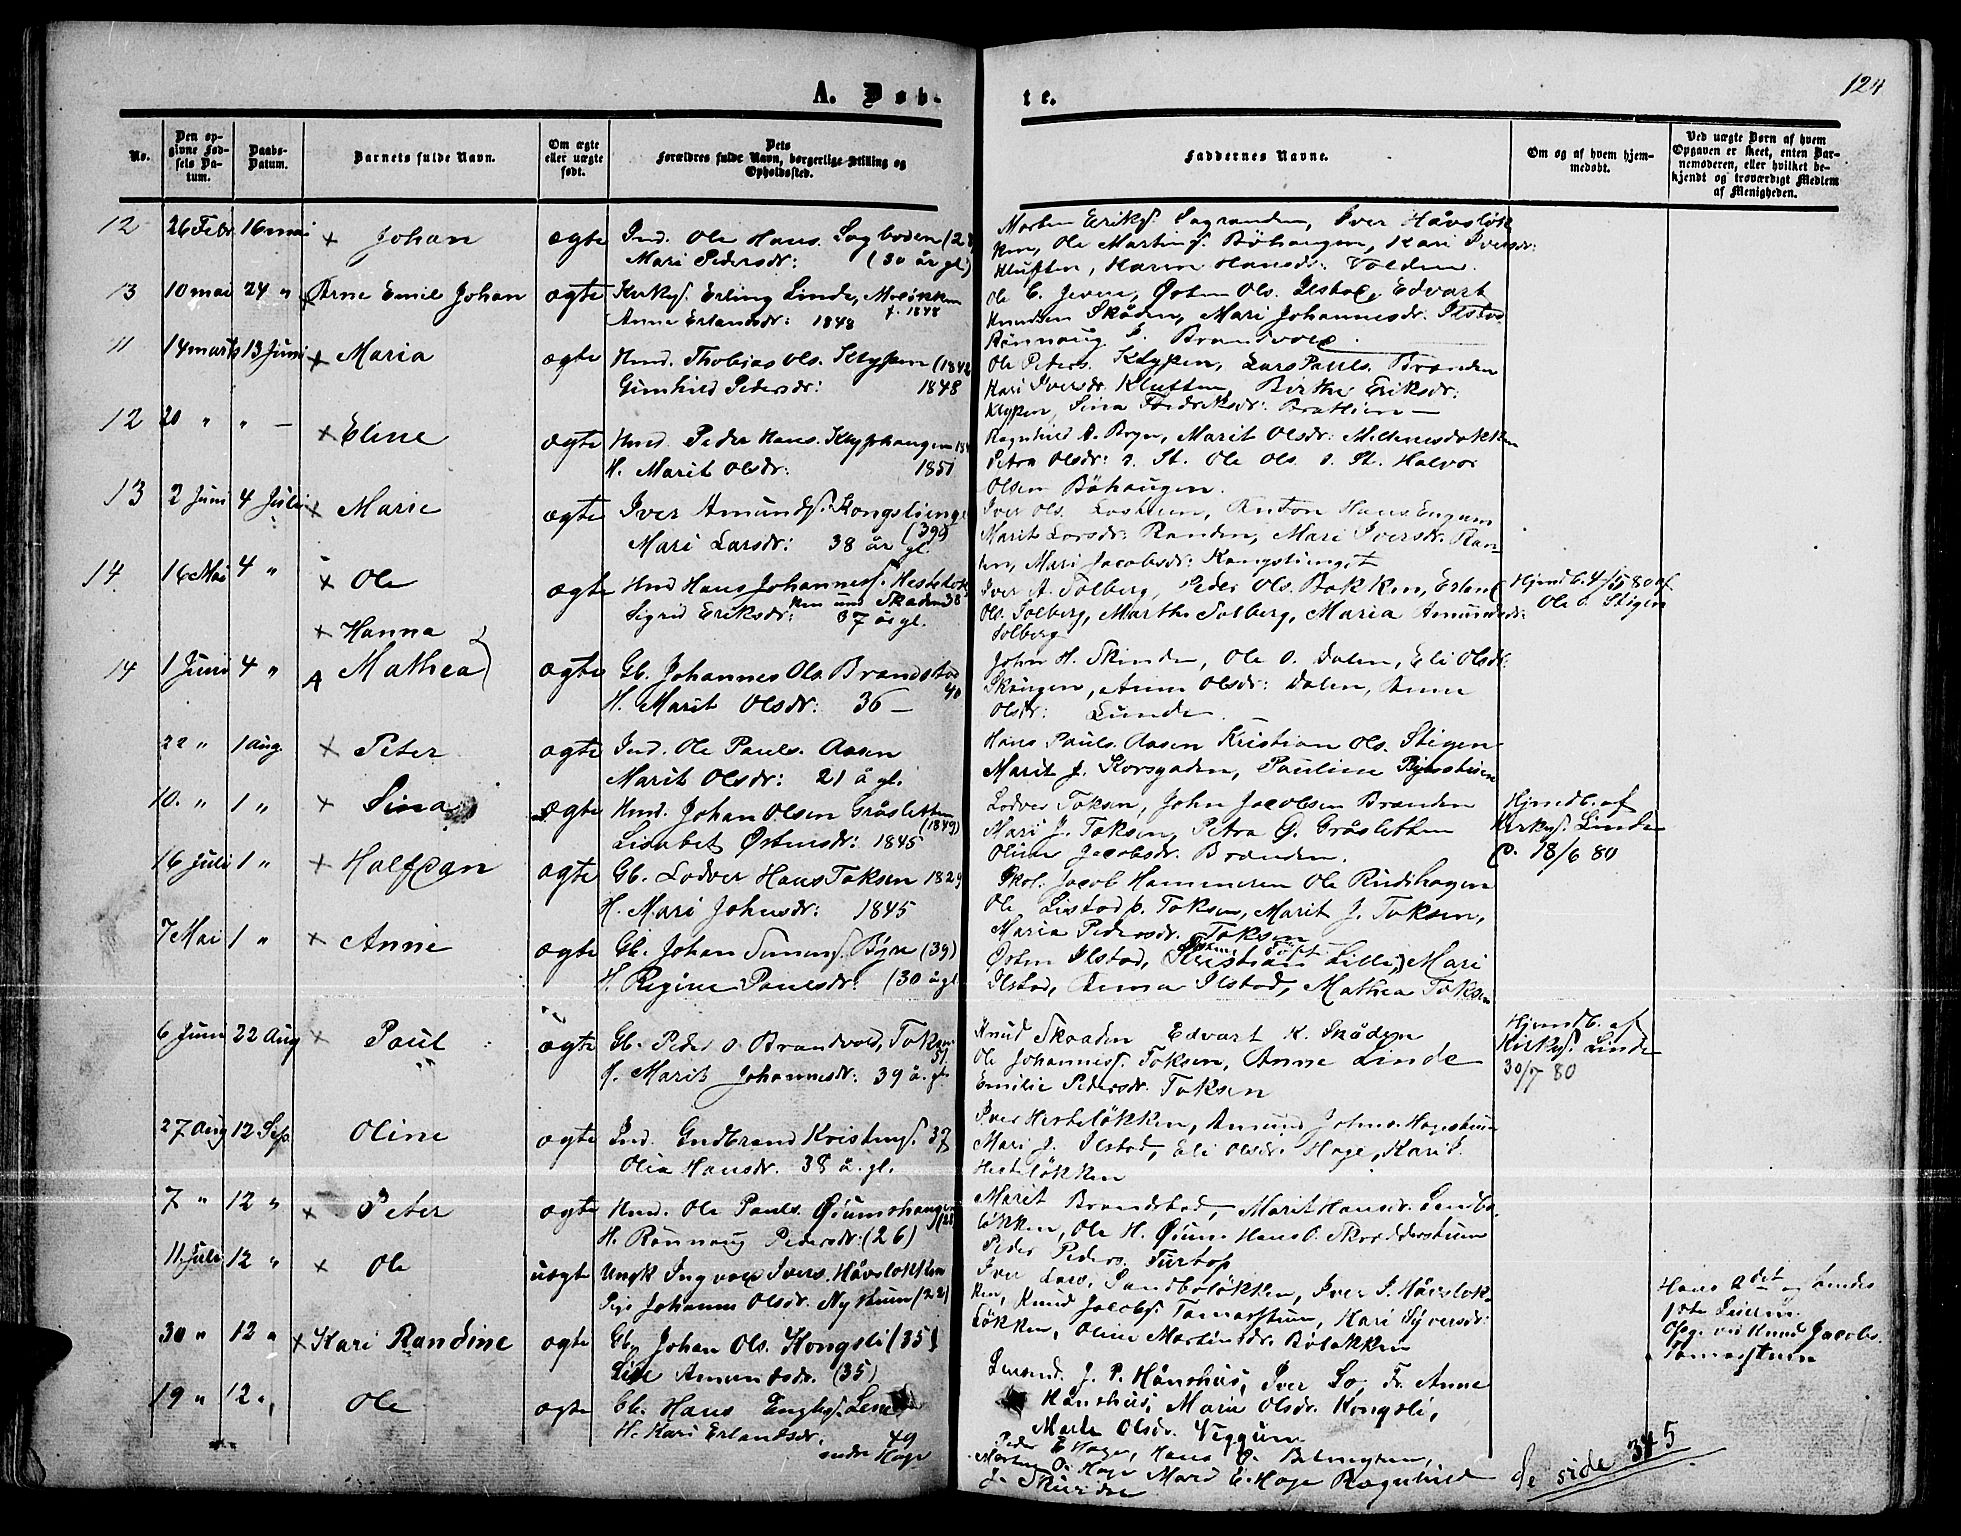 124
A. Døb-
te.
No.
Den opgivne Fødsels Datum.
Daabs-Datum.
Barnets fulde Navn.
Om ægte eller uægte født.
Dets Forældres fulde Navn, borgerlige Stilling og Opholdssted.
Faddernes Navne.
Om og af hvem hjemmedøbt.
Ved uægte Børn af hvem Opgaven er skeet, enten Barnemoderen, eller hvilket bekjendt og troværdigt Medlem af Menigheden.
12 26 Febr 16 mai Johan ægte Ind. Ole Hans. Sagboden
Mari Pedersdr: (30 år gl)
Morten Eriks. Sagranden, Iver Håvsløk
ken, Ole Martins. Böhaugen, Kari Iversdr:
Kluften, Karen Hansdr: Volden.
13 10 mai 24 " Arne Emil Johan ægte Kirkes. Erling Linde,
f. 1848
Anne Erlandsdr: 1848
Ole E. Østen Ols. Ilstad, Edvart
Knudsen Skåden, Mari Johannesdr. Ilstad
Rønnaug
11 14 marts 13 Juni Maria ægte Hmd. Thobias Ols. Klypen (1842
Gunhild Pedersdr: 1848
Ole Peders. Klypen, Lars Pauls. Brænden
Kari Iversdr. Kluften, Berthe Eriksdr:
Klypen, Sina Fredriksdr:
12 20 " " — Eline ægte Hmd. Peder Hans. Klyphaugen
H. Marit Olsdr: 1851
Ragnhild A. Bryn, Marit Olsdr:
Petra Olsdr: s. St. Ole Ols. s. St. Halvor
Olsen Böhaugen.
13 2 Juni 4 Juli Marie ægte Iver Amunds. Kongslienget
(39)
Mari Larsdr: 38 år gl.
Iver Ols. Anton Hans
Marit Larsdr: Randen, Mari Iversdr. Ran-
den, Mari Jacobsdr: Kongslienget
14. 16 Mai 4 " Ole ægte Hmd Hans Johannes. Hesteløk
ken und Skåden 38
Sigrid Eriksdr: 37 år gl.
Iver A. Solberg, Peder Ols. Bakken, Erland
Ols. Solberg, Marthe Solberg, Maria Amundsdr:
Solberg
Hjemdb. 4/5 80 af
Ole O. Stigen
Hanna
14 1 Juni 4 " Mathea ægte Gb. Johannes Ols. Brandstad
40
H. Marit Olsdr: 36 —
John H. Skinde, Ole O. Dalen, Eli Olsdr:
Skaugen, Anne Olsdr: Dalen, Anne
Olsdr: Lunde.
22 " 1 Aug. Peter ægte Ind. Ole Pauls. Aasen
Marit Olsdr: 21 å gl.
Hans Pauls. Aasen Kristian Ols. Stigen
Marit J. Korsgaden, Pauline
10. " 1 " Sina ægte Hmd. Johan Olsen Gråsletten
(1849)
Lisabet Østensdr: 1845
Lodver Toksen, John Jacobsen Brænden
Mari J. Toksen, Petra Ø. Gråsletten
Oline Jacobsdr. Brænden.
Hjemdb. af
Kirkes. Linde
d. 18/6 80
16 Juli 1 " Halfdan ægte Gb. Lodver Hans Toksen 1829
H. Mari Johnsdr: 1845
Skol. Jacob Hammeren Ole Rudshagen
Ole Listad p. Toksen, Marit J. Toksen,
Maria Pedersdr. Toksen
7 Mai 1 " Anne ægte Gb. Johan Simens. Byre (39)
H. Regine Paulsdr: (30 å gl
Østen Ilstad, Kristian Lille, Mari
Ilstad, Anna Ilstad, Mathea Toksen
6 Juni 22 Aug Paul ægte Gb. Peder O. Brandvold, Toksen
51.
H. Marit Johannesdr: 39 å. gl.
Knud Skaaden Edvart K. Skåden
Ole Johannes. Toksen, Anne Linde
Emilie Pedersdr. Toksen
Hjemdb. af
Kirkes. Linde
30/7 80
27 Aug 12 Sep. Oline ægte Ind. Gudbrand Kristens. 37
Olia Hansdr. 38 å. gl.
Iver Hesteløkken, Amund Johns.
Mari J. Ilstad, Eli Olsdr: Hage, Kari I.
Hesteløkken
7 " 12 " Peter ægte Hmd. Ole Pauls. Øiumshaugen
H. Rønnaug Pedersdr: (26)
Marit Brandstad, Marit Hansdr.
løkken, Ole H. Øium Hans O. Skrædderstuen
Peder Peders. Furtop
11 Juli 12 " Ole uægte Ungk Ingvald Ivers. Håvsløkken
Pige Johanne Olsdr. Nystuen (22)
Iver Lars. Sandboløkken, Iver I. Håvsløk-
ken, Knud Jacobs. Tamarstuen, Kari Syversdr:
løkken, Oline Mortensdr. Böløkken
Hans 2det og hendes
1ste
Opg. ved Knud Jacobs.
Tamarstuen
30 " 12 " Kari Randine ægte Gb. Johan Ols. Kongsli (35)
Amundsdr. (35)
J. P. Hånshus, Iver Lo, Fr. Anne
Hånshus, Marie Olsdr. Kongsli,
Marte Olsdr. Viggum
19 " 12 " Ole ægte Gb. Hans
H. Kari Erlandsdr. 49
Hage
Peder E. Hage, Hans
Morten O. Hage Mari E. Hage Ragnhild
J. Skinde
Se side 345